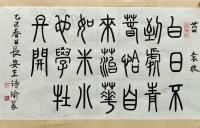 苔
袁枚
白日不
到處青
春恰自
來苔花
如米小
也學牡
丹開
乙巳春日長安王詩